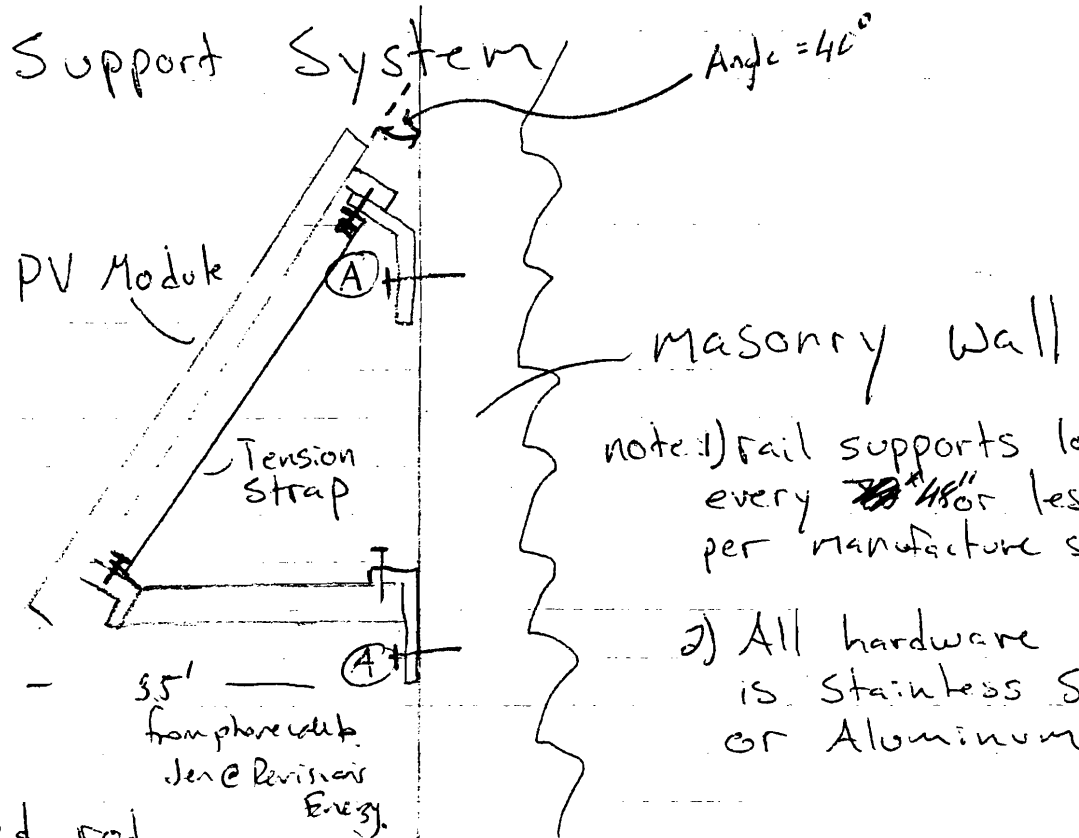 Support System
Angle = 40°
PV Module
A
masonry Wall
Tension
Strap
note: 1) rail supports
every 48" or
per manufacture
2) All hardware
is Stainless
or Aluminum
A
3.5'
from phone call to
Jen @ Revisions
Energy.
rod